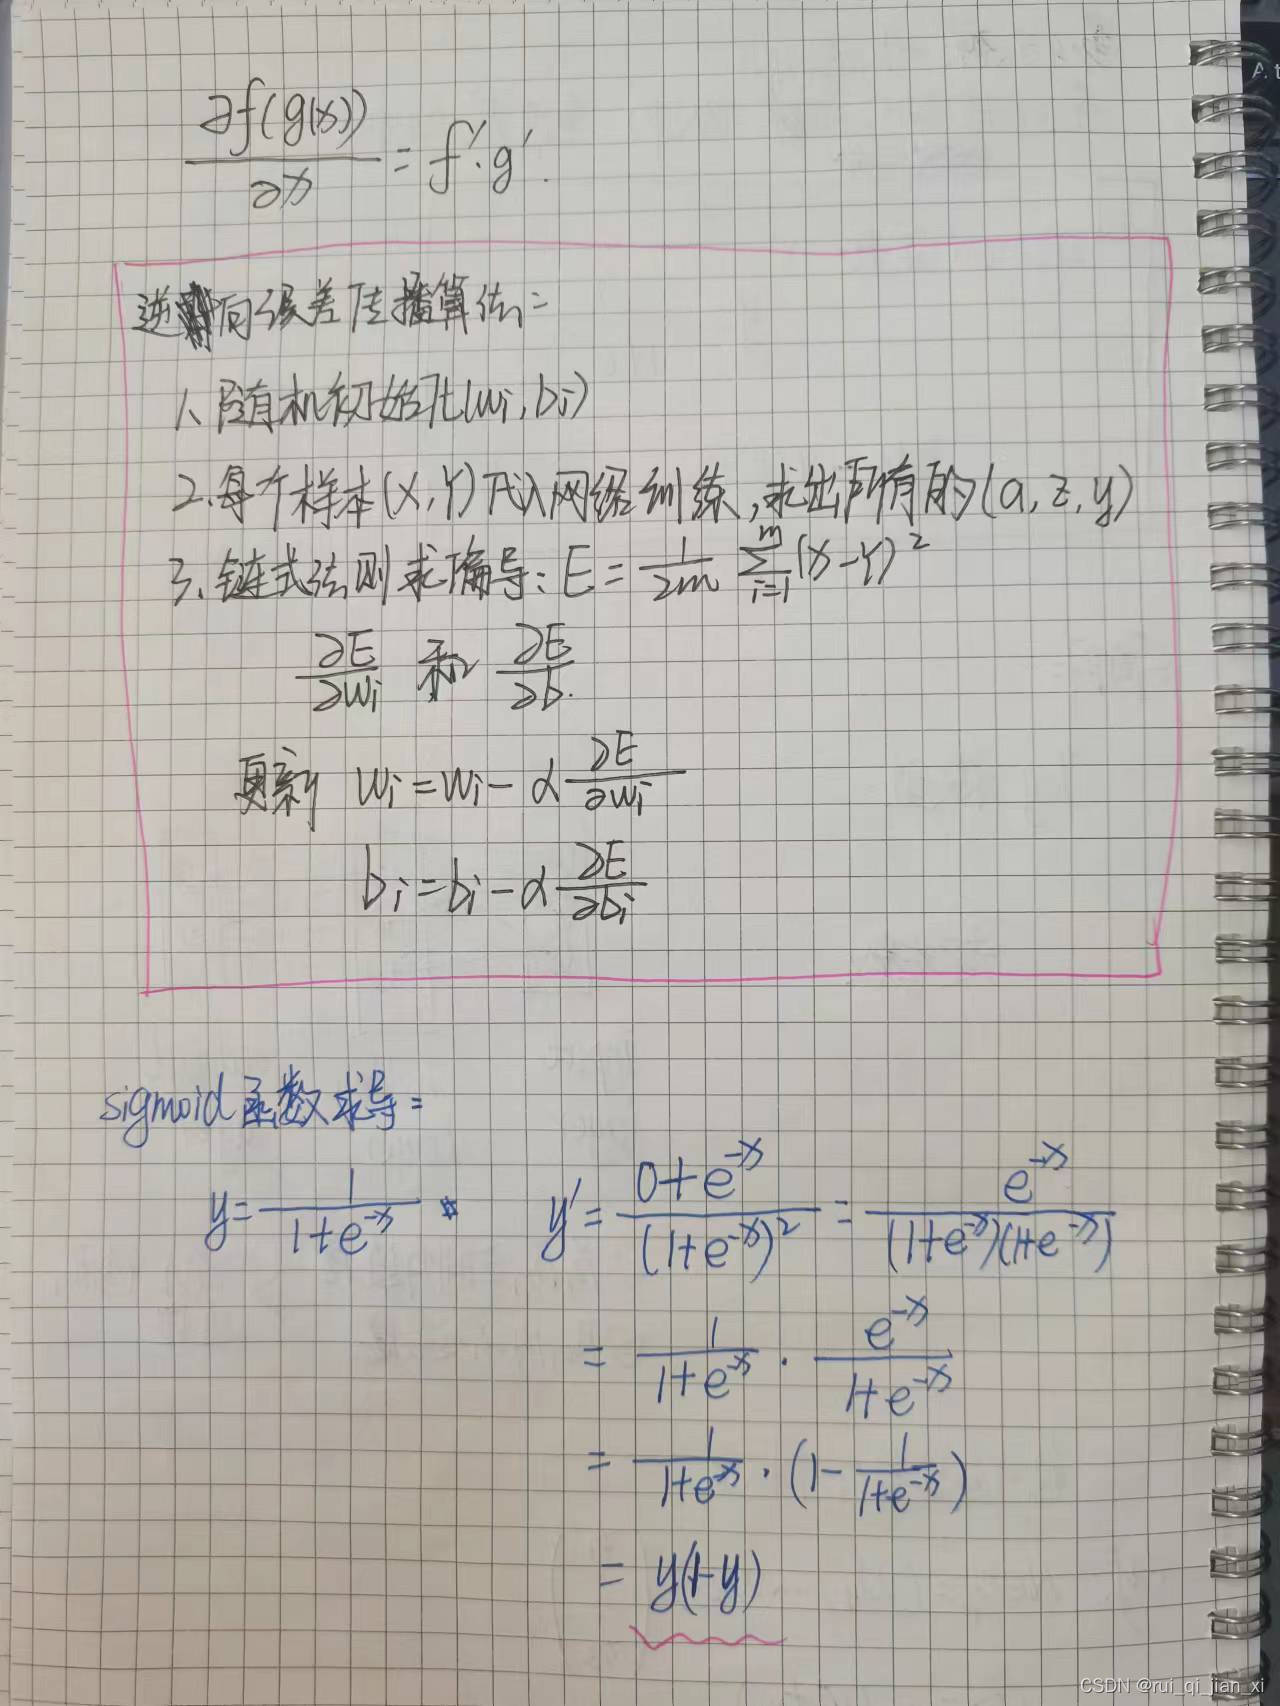 ∂f(g(x))/∂x = f'·g'.
逆向误差传播算法:
1、随机初始化(wi, bi)
2、每个样本(X, Y)代入网络训练,求出所有的(a, z, y)
3、链式法则求偏导: E = 1/2m ∑_{i=1}^{m} (x-Y)²
∂E/∂wi 和 ∂E/∂b.
更新 wi = wi - α ∂E/∂wi
bi = bi - α ∂E/∂bi
sigmoid函数求导:
y = 1/(1+e^{-x}) y' = (0+e^{-x})/(1+e^{-x})² = e^{-x}/((1+e^{-x})(1+e^{-x}))
= 1/(1+e^{-x}) · e^{-x}/(1+e^{-x})
= 1/(1+e^{-x}) · (1 - 1/(1+e^{-x}))
= y(1-y)
CSDN @rui_qi_jian_xi